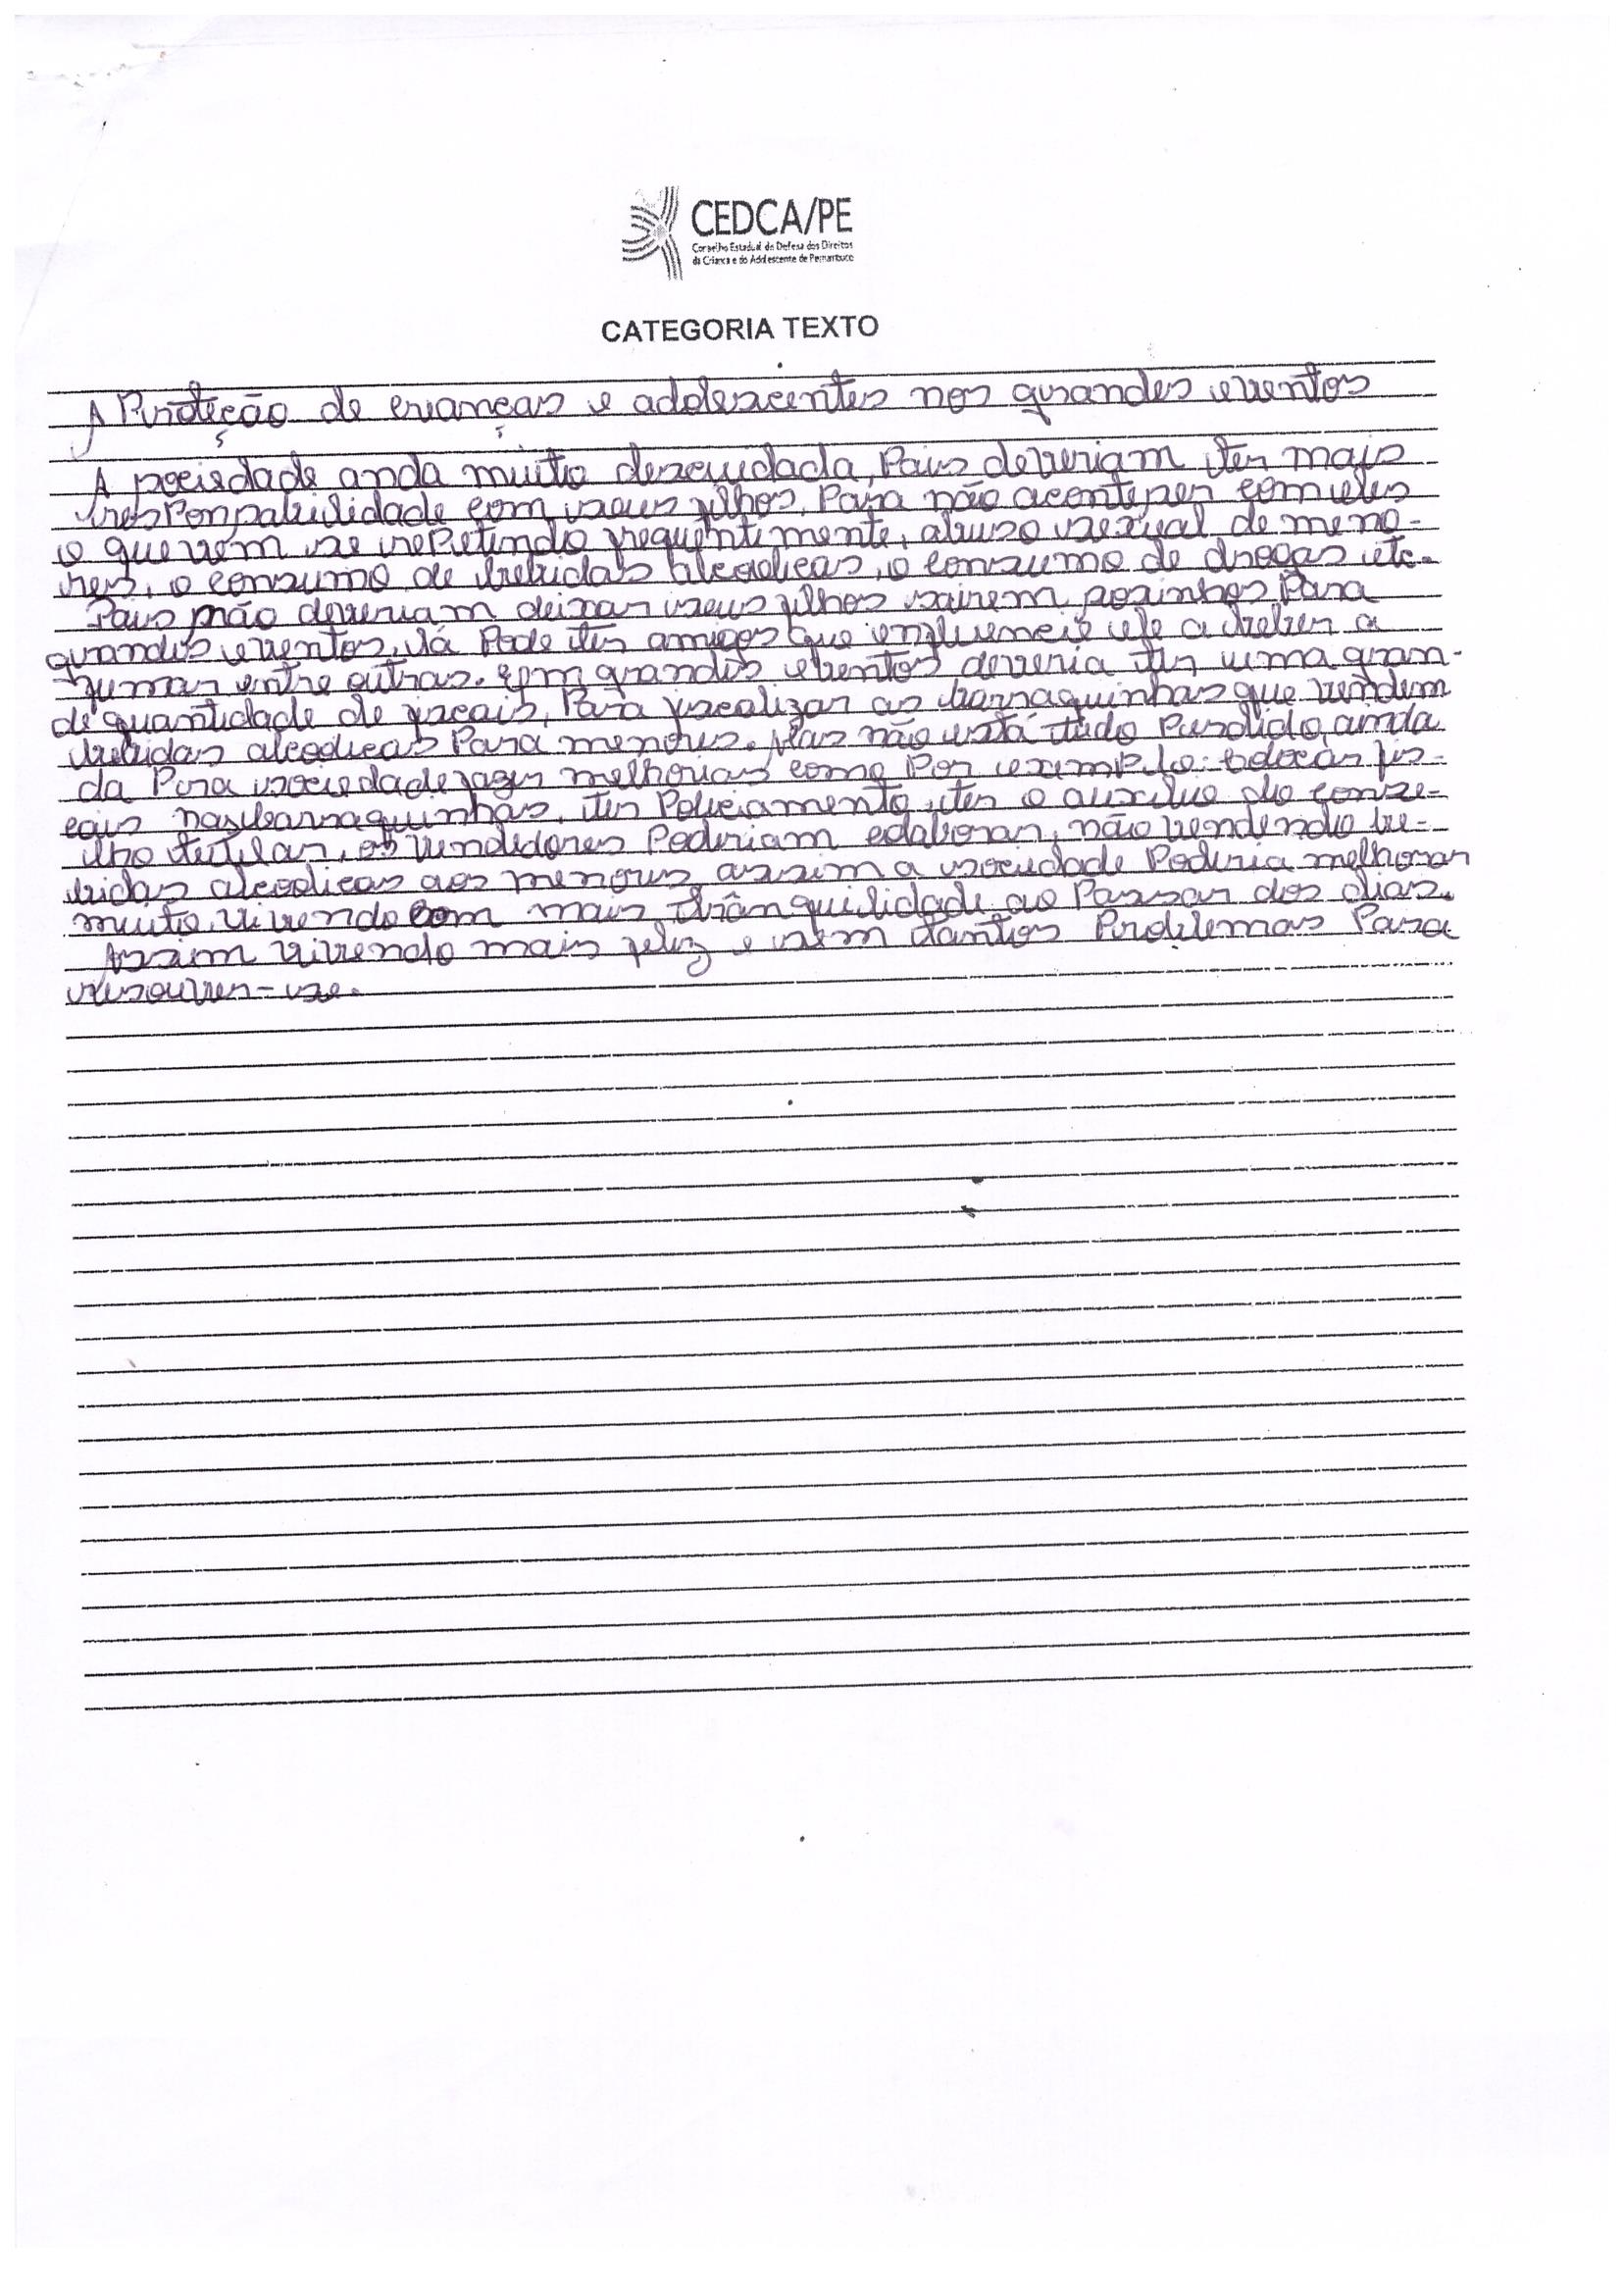 CEDCA/PE
Conselho Estadual de Defesa dos Direitos
da Criança e do Adolescente de Pernambuco
CATEGORIA TEXTO
A Proteção de crianças e adolescentes nos grandes eventos
A sociedade anda muito descuidada, Pais deveriam ter mais
resPonsabilidade com seus filhos, Para não acontecer com eles
o que vem se rePetindo frequentimente, abuso sexual de meno-
res, o consumo de bebidas alcoolicas, o consumo de drogas etc.
Pais não deveriam deixar seus filhos sairem sozinhos Para
grandes eventos, lá Pode ter amigos que influencie ele a beber a
fumar entre outras. Em grandes eventos deveria ter uma gran-
de quantidade de fiscais, Para fiscalizar as barraquinhas que vendem
bebidas alcoolicas Para menores. Mas não está tudo Perdido, ainda
da Para sociedade fazer melhorias como Por exemplo: colocar fis-
cais nas barraquinhas, ter Policiamento, ter o auxílio do conse-
lho tutelar, os vendedores Poderiam colaborar, não vendendo be-
bidas alcoolicas aos menores assim a sociedade Poderia melhorar
muito, vivendo com mais tranquilidade ao Passar dos dias.
Assim vivendo mais feliz e sem tantos Problemas Para
resouver-se.